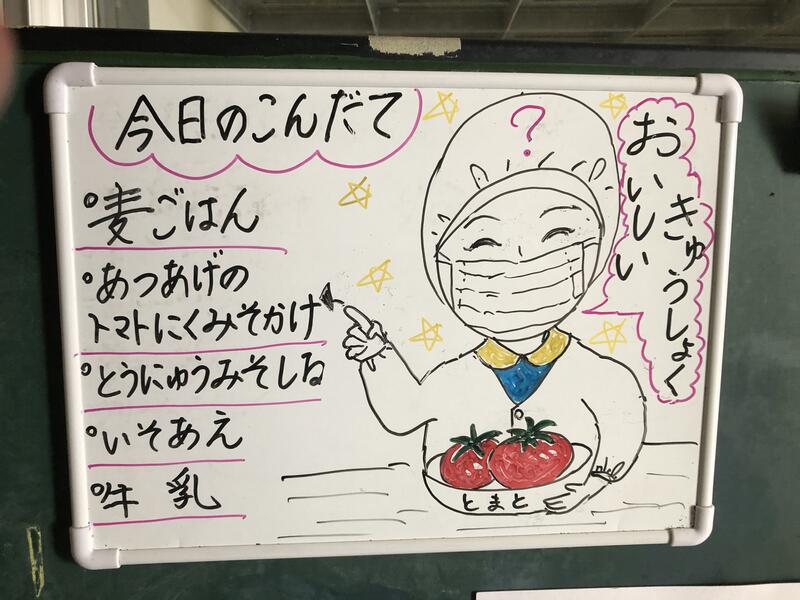 今日のこんだて
麦ごはん
あつあげの
トマトにくみそかけ
とうにゅうみそしる
いそあえ
牛乳
?
おいしい
きゅうしょく
とまと